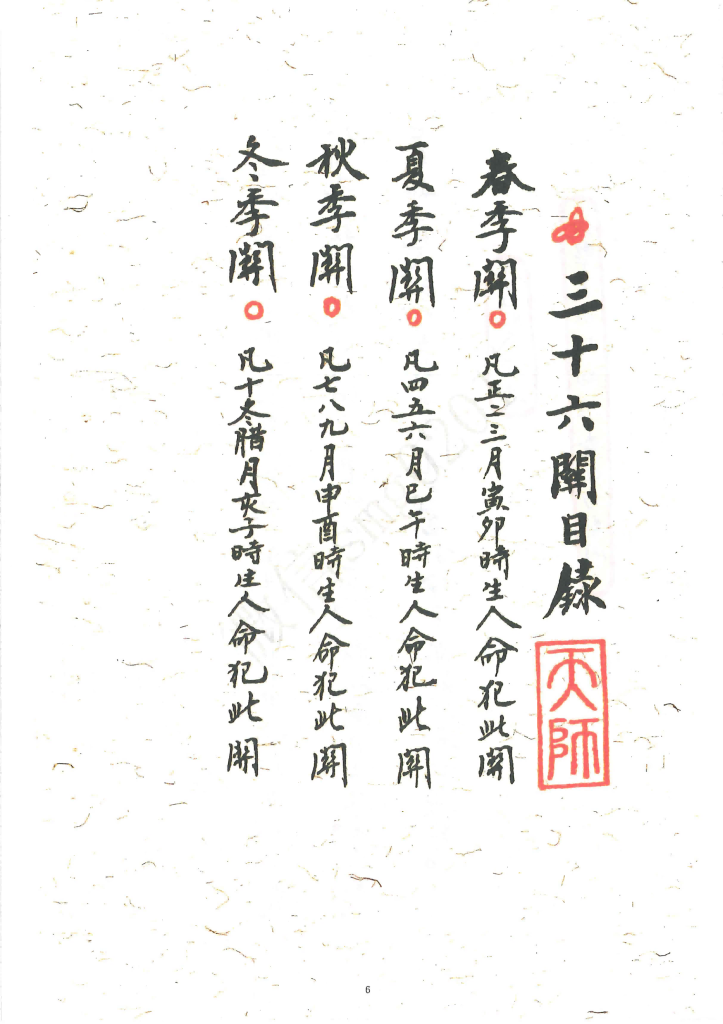 三十六關目錄
天師
春季關
凡正二三月寅卯時生人命犯此關
夏季關
凡四五六月巳午時生人命犯此關
秋季關
凡七八九月申酉時生人命犯此關
冬季關
凡十冬腊月亥子時生人命犯此關
6